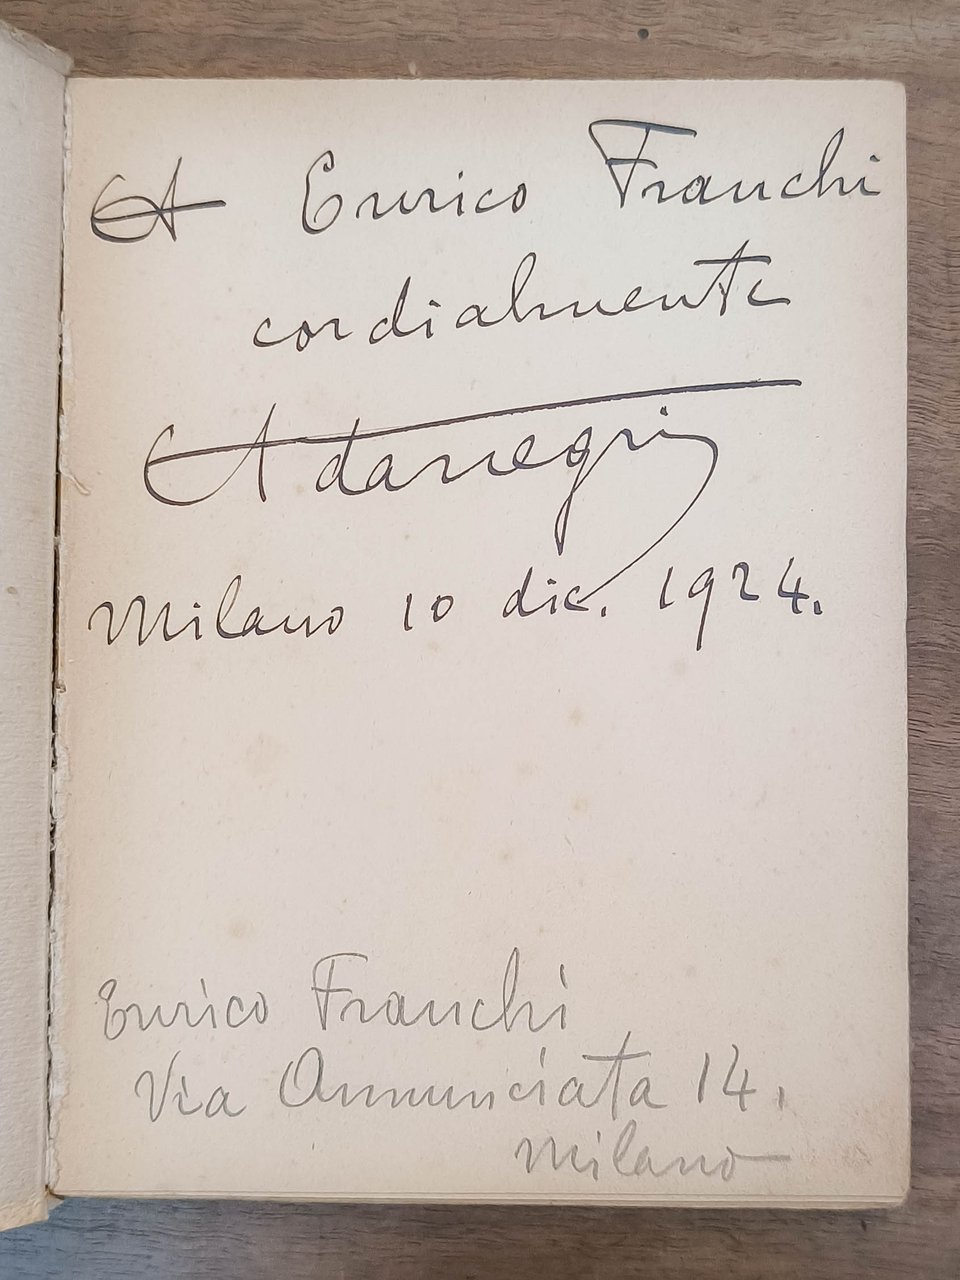 A Enrico Franchi
cordialmente
Adanegri
Milano 10 dic. 1924.
Enrico Franchi
Via Annunciata 14.
Milano